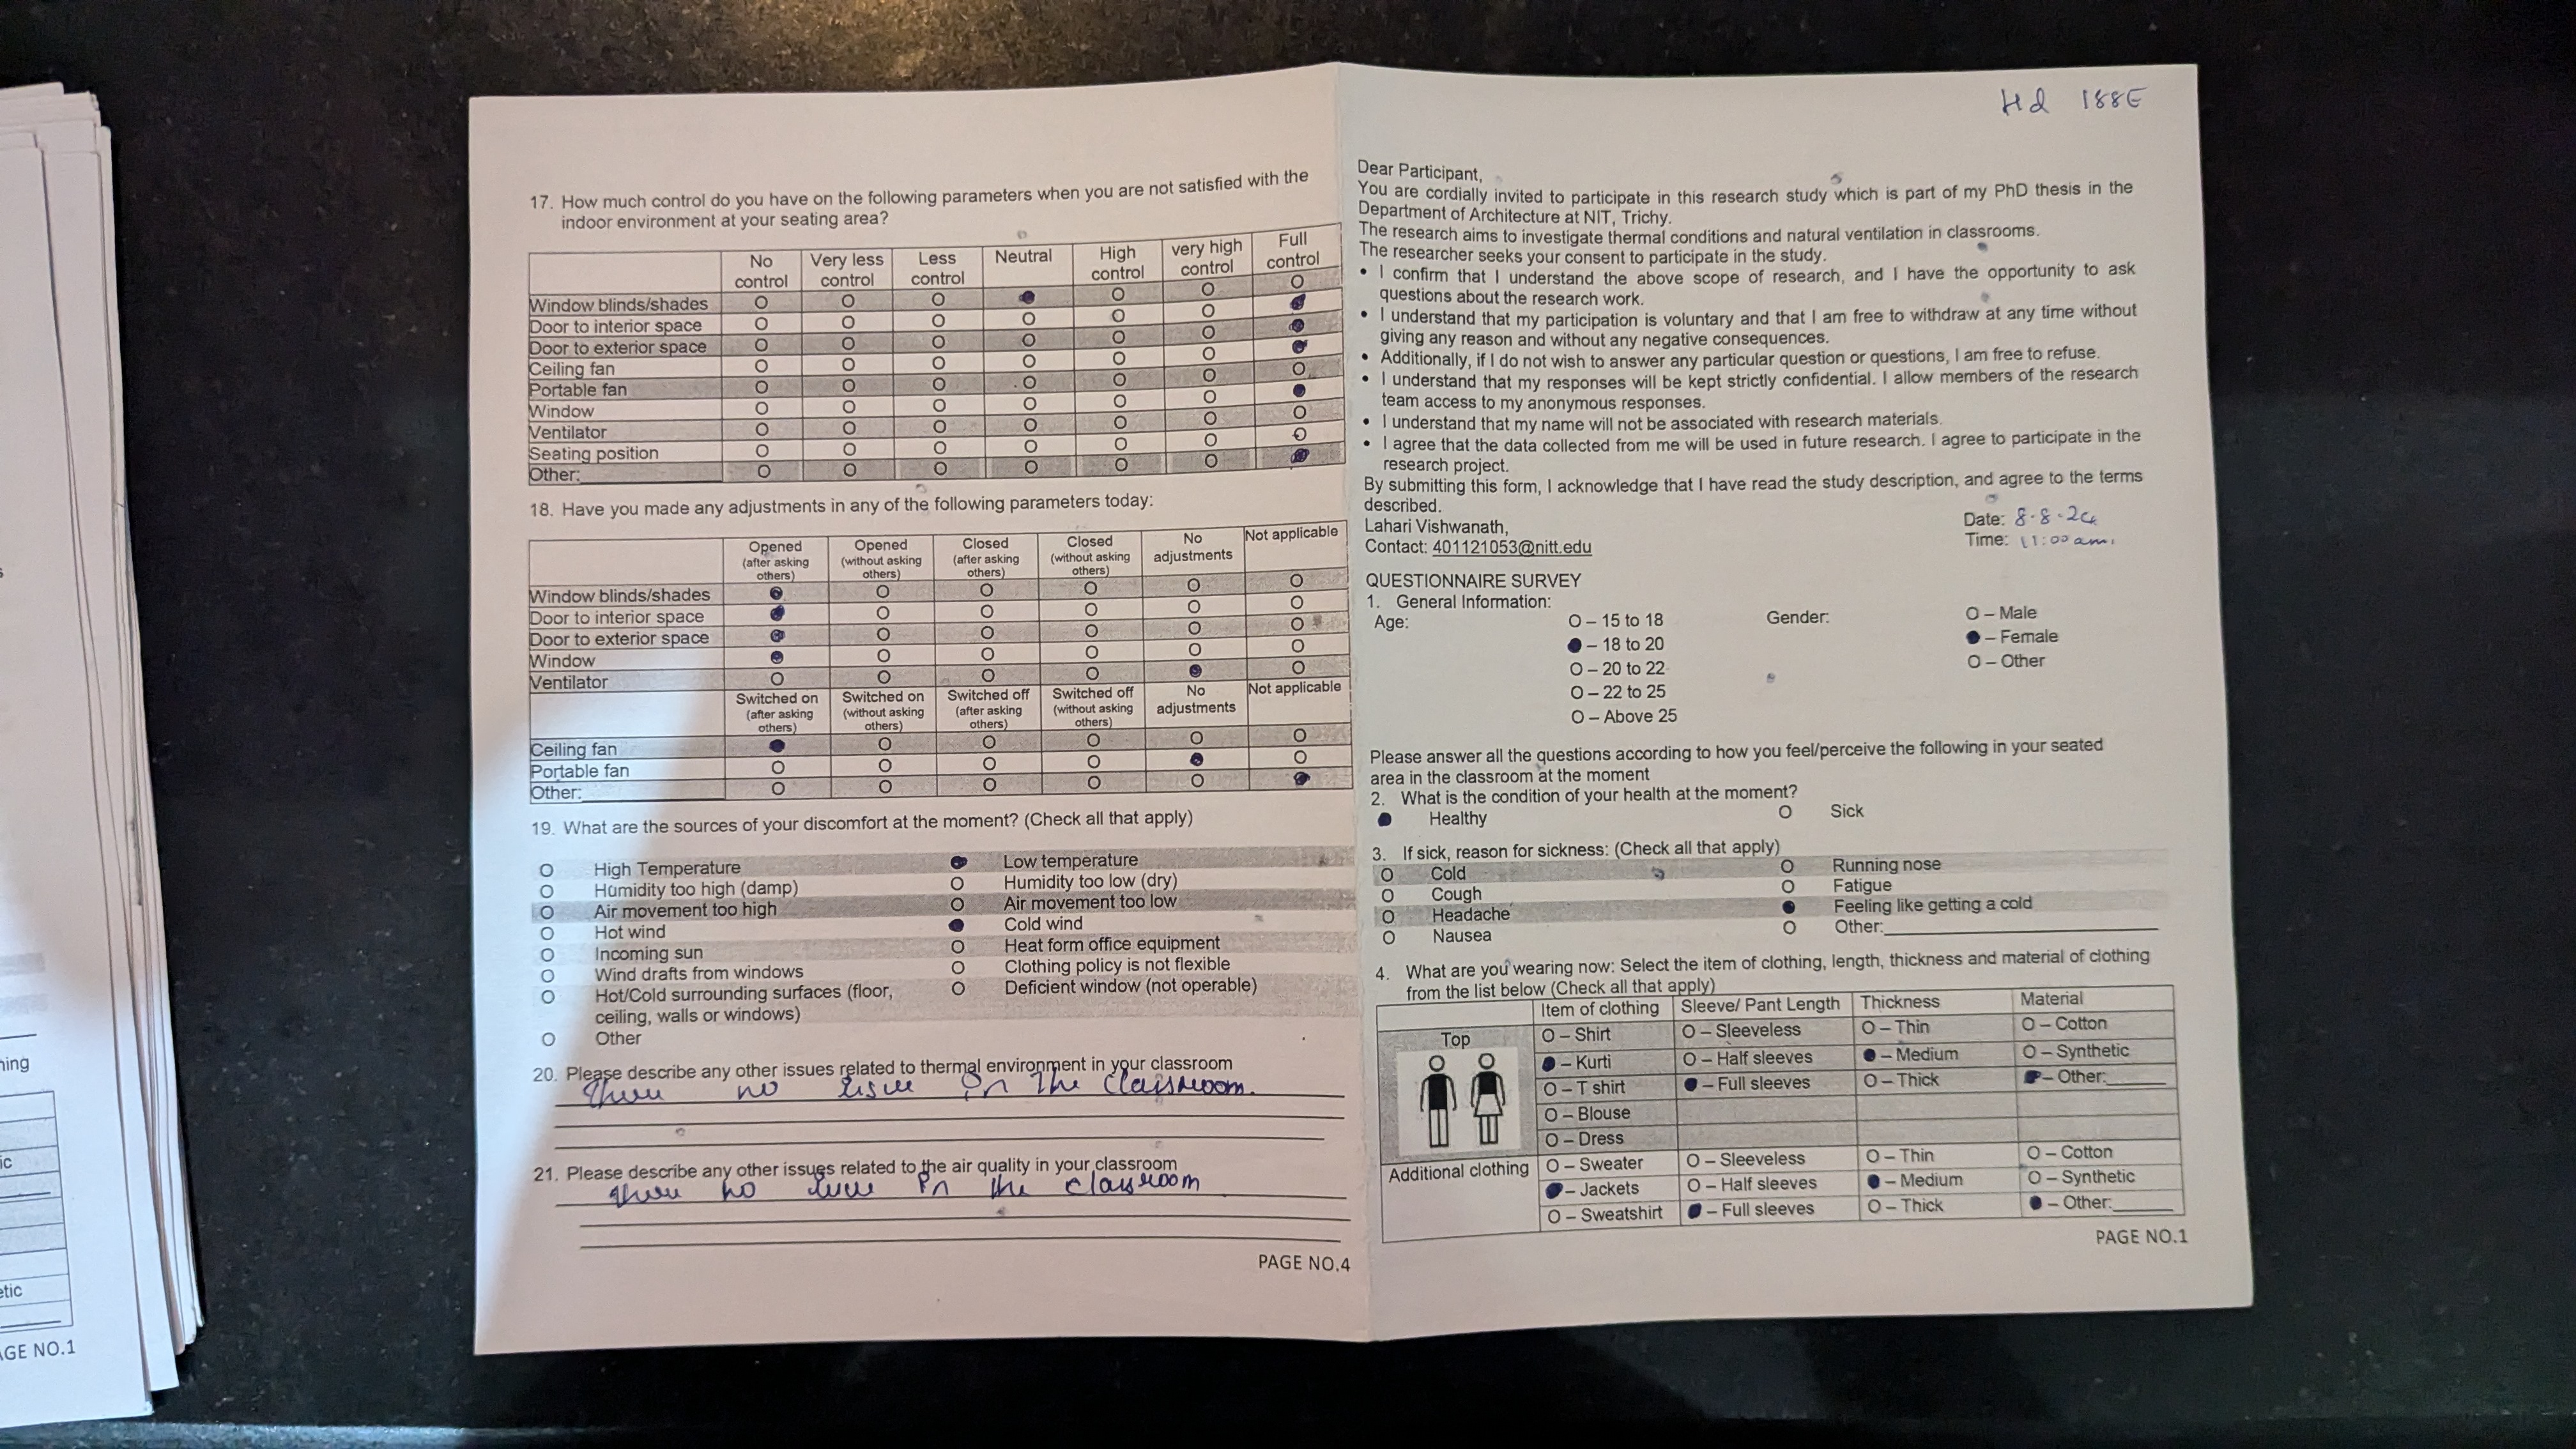 17. How much control do you have on the following parameters when you are not satisfied with the
indoor environment at your seating area?
No control Very less control Less control Neutral High control very high control Full control
Window blinds/shades O O O ● O O O
Door to interior space O O O O O O ●
Door to exterior space O O O O O O ●
Ceiling fan O O O O O O ●
Portable fan O O O O O O O
Window O O O O O O ●
Ventilator O O O O O O O
Seating position O O O O O O O
Other: O O O O O O ●
18. Have you made any adjustments in any of the following parameters today:
Opened (after asking others) Opened (without asking others) Closed (after asking others) Closed (without asking others) No adjustments Not applicable
Window blinds/shades ● O O O O O
Door to interior space ● O O O O O
Door to exterior space ● O O O O O
Window ● O O O O O
Ventilator O O O O ● O
Switched on (after asking others) Switched on (without asking others) Switched off (after asking others) Switched off (without asking others) No adjustments Not applicable
Ceiling fan ● O O O O O
Portable fan O O O O ● O
Other: O O O O O ●
19. What are the sources of your discomfort at the moment? (Check all that apply)
O High Temperature ● Low temperature
O Humidity too high (damp) O Humidity too low (dry)
O Air movement too high O Air movement too low
O Hot wind ● Cold wind
O Incoming sun O Heat form office equipment
O Wind drafts from windows O Clothing policy is not flexible
O Hot/Cold surrounding surfaces (floor, O Deficient window (not operable)
ceiling, walls or windows)
O Other
20. Please describe any other issues related to thermal environment in your classroom
no in the classroom.
21. Please describe any other issues related to the air quality in your classroom
no in the classroom
PAGE NO.4
Hd 188E
Dear Participant,
You are cordially invited to participate in this research study which is part of my PhD thesis in the
Department of Architecture at NIT, Trichy.
The research aims to investigate thermal conditions and natural ventilation in classrooms.
The researcher seeks your consent to participate in the study.
• I confirm that I understand the above scope of research, and I have the opportunity to ask
questions about the research work.
• I understand that my participation is voluntary and that I am free to withdraw at any time without
giving any reason and without any negative consequences.
• Additionally, if I do not wish to answer any particular question or questions, I am free to refuse.
• I understand that my responses will be kept strictly confidential. I allow members of the research
team access to my anonymous responses.
• I understand that my name will not be associated with research materials.
• I agree that the data collected from me will be used in future research. I agree to participate in the
research project.
By submitting this form, I acknowledge that I have read the study description, and agree to the terms
described.
Lahari Vishwanath, Date: 8-8-24
Contact: 401121053@nitt.edu Time: 11:00 am.
QUESTIONNAIRE SURVEY
1. General Information:
Age: O – 15 to 18 Gender: O – Male
● – 18 to 20 ● – Female
O – 20 to 22 O – Other
O – 22 to 25
O – Above 25
Please answer all the questions according to how you feel/perceive the following in your seated
area in the classroom at the moment
2. What is the condition of your health at the moment?
● Healthy O Sick
3. If sick, reason for sickness: (Check all that apply)
O Cold O Running nose
O Cough O Fatigue
O Headache ● Feeling like getting a cold
O Nausea O Other:
4. What are you wearing now: Select the item of clothing, length, thickness and material of clothing
from the list below (Check all that apply)
Item of clothing Sleeve/ Pant Length Thickness Material
Top O – Shirt O – Sleeveless O – Thin O – Cotton
● – Kurti O – Half sleeves ● – Medium O – Synthetic
O – T shirt ● – Full sleeves O – Thick ● – Other:
O – Blouse
O – Dress
Additional clothing O – Sweater O – Sleeveless O – Thin O – Cotton
● – Jackets O – Half sleeves ● – Medium O – Synthetic
O – Sweatshirt ● – Full sleeves O – Thick ● – Other:
PAGE NO.1